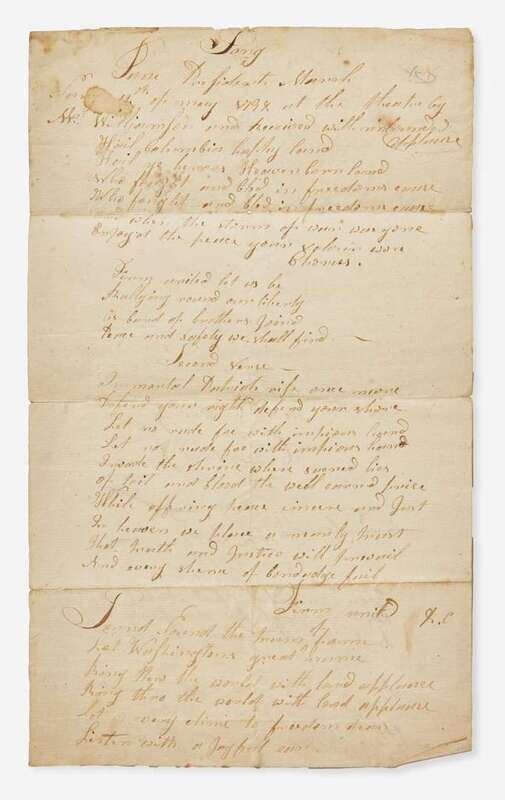 Song
Tune President March
Sung 11th of may 1798 at the theatre by
Mr Williamson and received with unbounded
applause
Hail Columbia happy land
Hail ye heroes Heaven born band
Who fought and bled in freedoms cause
Who fought and bled in freedoms cause
and when the storm of warr was gone
Enjoy'd the peace your valour won
Chorus.
Firm united let us be
Rallying round our liberty
As band of brothers Joind
Peace and safety we shall find
Second Verse
Immortal Patriots rise once more
Defend your right defend your shore
Let no rude foe with impious hand
Let no rude foe with impious hand
Invade the shrine where sacred lies
of toil and blood the well earned prise
While offering peace sincere and Just
In heaven we place a manly trust
That truth and Justice will prevail
And every sheme of bondadge fail
Firm united &c
Sound Sound the trump of fame
Let Washingtons great name
Ring thro the world with loud applause
Ring thro the world with loud applause
Let every clime to freedom dear
Listen with a Joyful ear